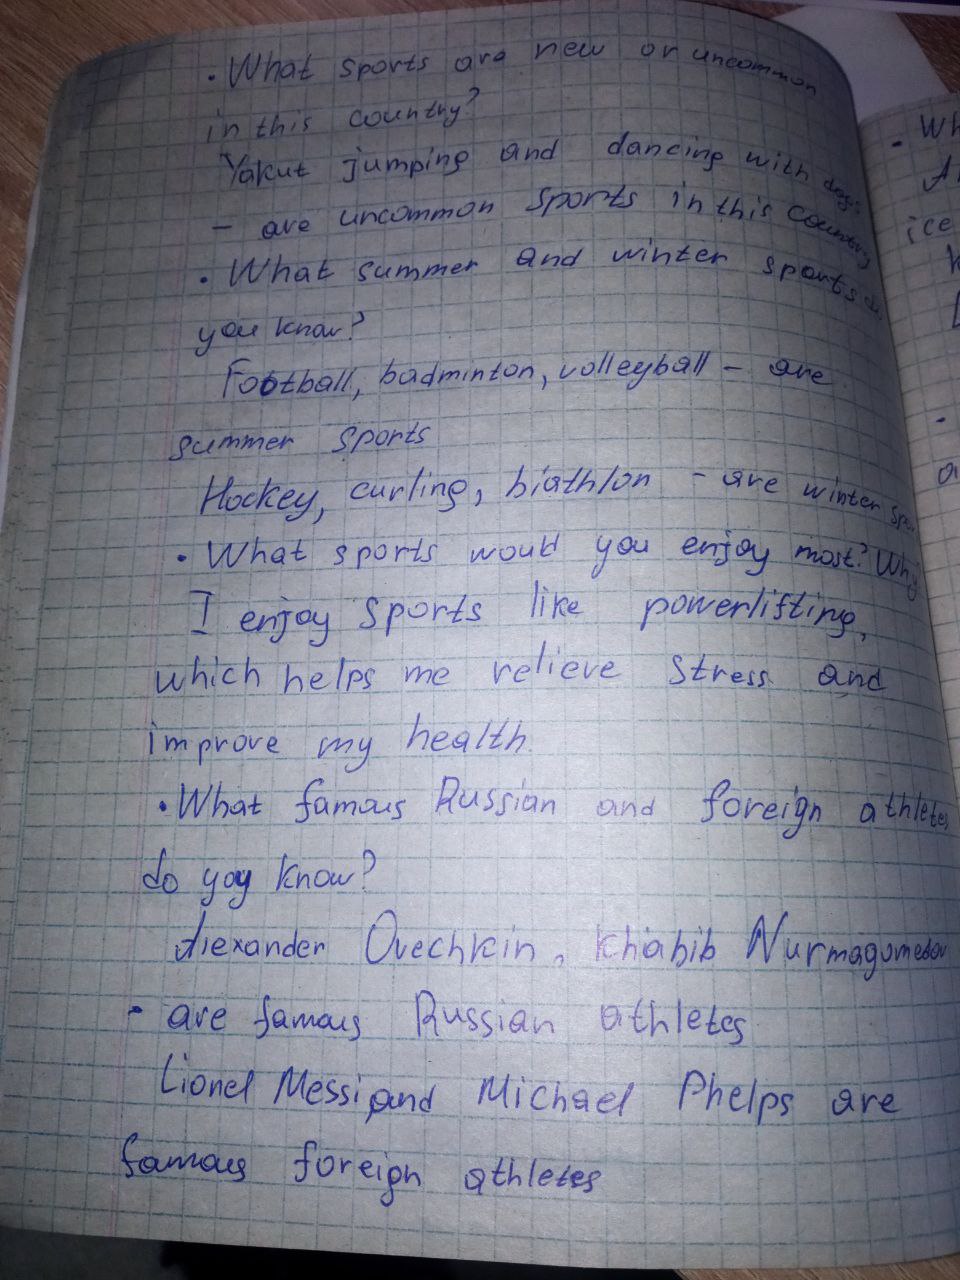 • What sports are new or uncommon
in this country?
Yakut jumping and dancing with dogs
– are uncommon sports in this country
• What summer and winter sports do
you know?
Football, badminton, volleyball – are
summer sports
Hockey, curling, biathlon – are winter
• What sports would you enjoy most? Why
I enjoy sports like powerlifting,
which helps me relieve stress and
improve my health
• What famous Russian and foreign athletes
do yoy know?
Alexander Ovechkin, Khabib Nurmagomedov
- are famous Russian athletes
Lionel Messi and Michael Phelps are
famous foreign athletes
• Wh
ice